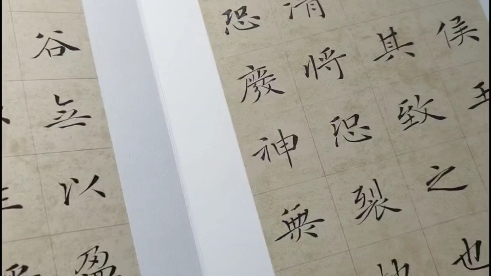 侯王
其致之也
清將恐裂地
恐廢神無
谷無以盈